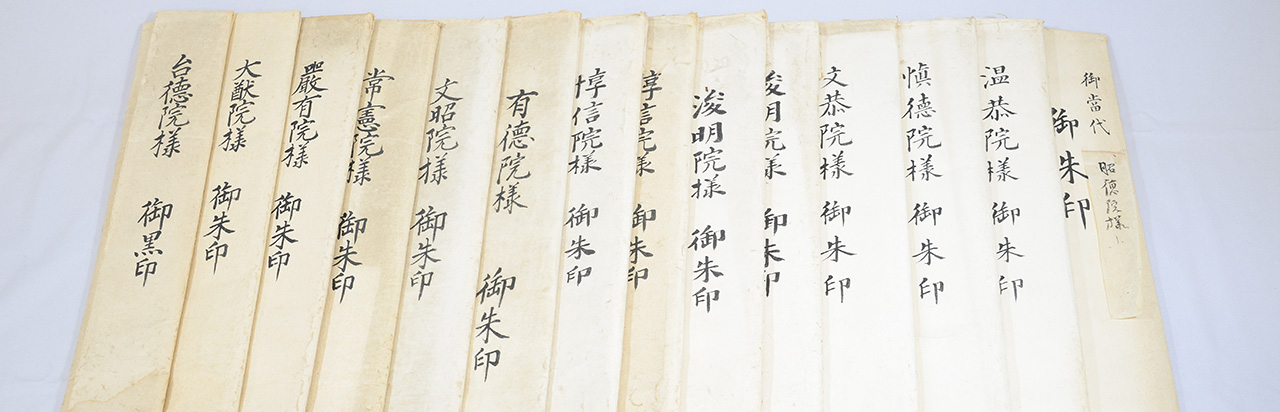 御當代
御朱印
昭德院様
温恭院様 御朱印
愼德院様 御朱印
文恭院様 御朱印
浚明院様 御朱印
浚明院様 御朱印
惇信院様 御朱印
惇信院様 御朱印
有德院様 御朱印
文昭院様 御朱印
常憲院様 御朱印
嚴有院様 御朱印
大猷院様 御朱印
台德院様 御黒印